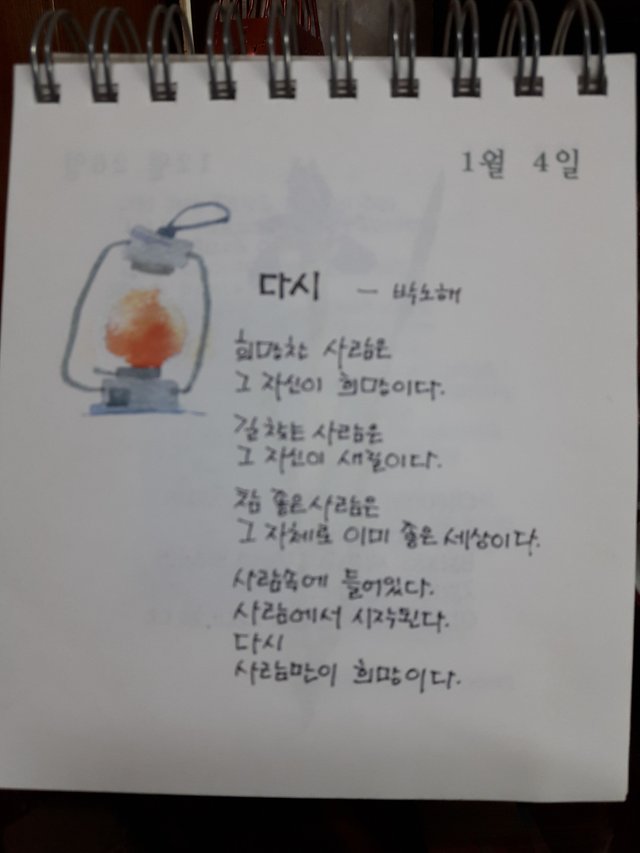 1월 4일
다시 - 박노해
희망찬 사람은
그 자신이 희망이다.
길찾는 사람은
그 자신이 새길이다.
참 좋은 사람은
그 자체로 이미 좋은 세상이다.
사람속에 들어있다.
사람에서 시작된다.
다시
사람만이 희망이다.